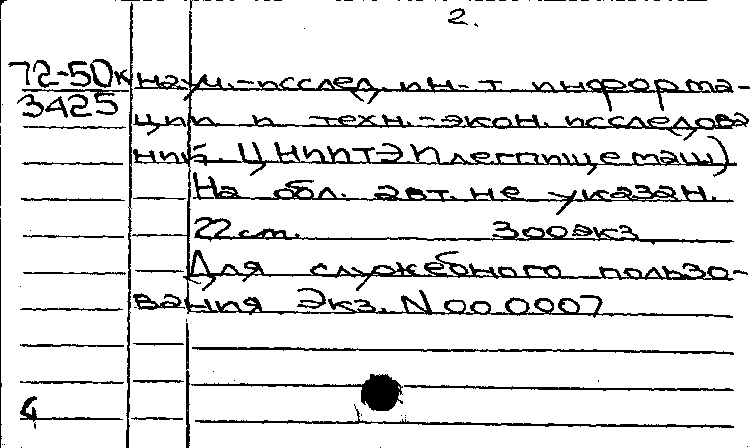 2.
72-50к науч.-исслед. ин-т информа-
3425 ции и техн.-экон. исследова
ний. ЦНИИТЭИлегпищемаш)
На обл. авт. не указан.
22 см. 300 экз
Для служебного пользо-
вания Экз. N 000007